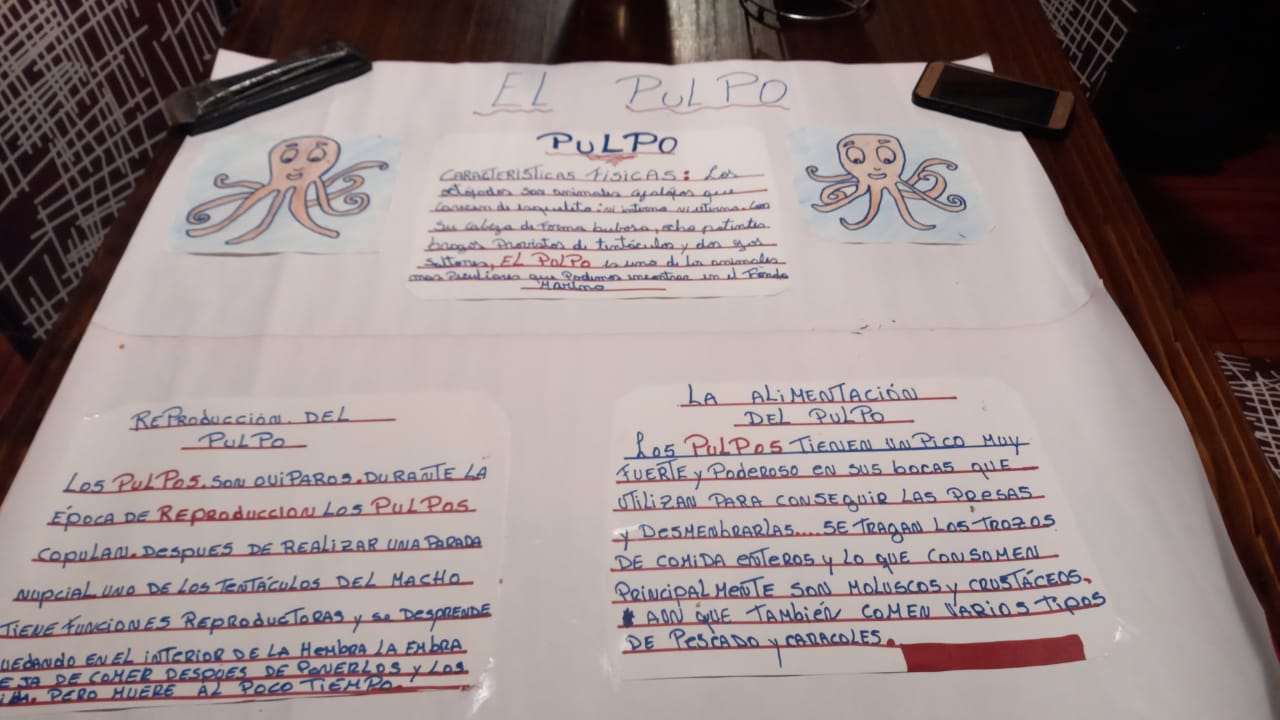 EL PULPO
PULPO
CARACTERISTICAS FISICAS: Los
son animales que
carecen de esqueleto: ni interno ni externo. Con
su cabeza de forma bulbosa, ocho potentes
brazos Provistos de tentáculos y dos ojos
EL PULPO es uno de los animales
mas Peculiares que Podemos encontrar en el Fondo
Marino
REPRODUCCIÓN DEL
PULPO
LOS PULPOS. SON OVIPAROS. DURANTE LA
EPOCA DE REPRODUCCION LOS PULPOS
COPULAN. DESPUES DE REALIZAR UNA PARADA
NUPCIAL UNO DE LOS TENTÁCULOS DEL MACHO
TIENE FUNCIONES REPRODUCTORAS y se DESPRENDE
UEDANDO EN EL INTERIOR DE LA HEMBRA LA EMBRA
EJA DE COMER DESPUES DE PONERLOS y LOS
PERO MUERE AL POCO TIEMPO.
LA ALIMENTACIÓN
DEL PULPO
Los PULPOS TIENEN UN PICO MUY
FUERTE y PODEROSO EN SUS BOCAS QUE
UTILIZAN PARA CONSEGUIR LAS PRESAS
y DESMENBRARLAS.... SE TRAGAN LOS TROZOS
DE COMIDA ENTEROS y LO QUE CONSUMEN
PRINCIPALMENTE SON MOLUSCOS y CRUSTÁCEOS.
AUN QUE TAMBIÉN COMEN VARIOS TIPOS
DE PESCADO y CARACOLES.